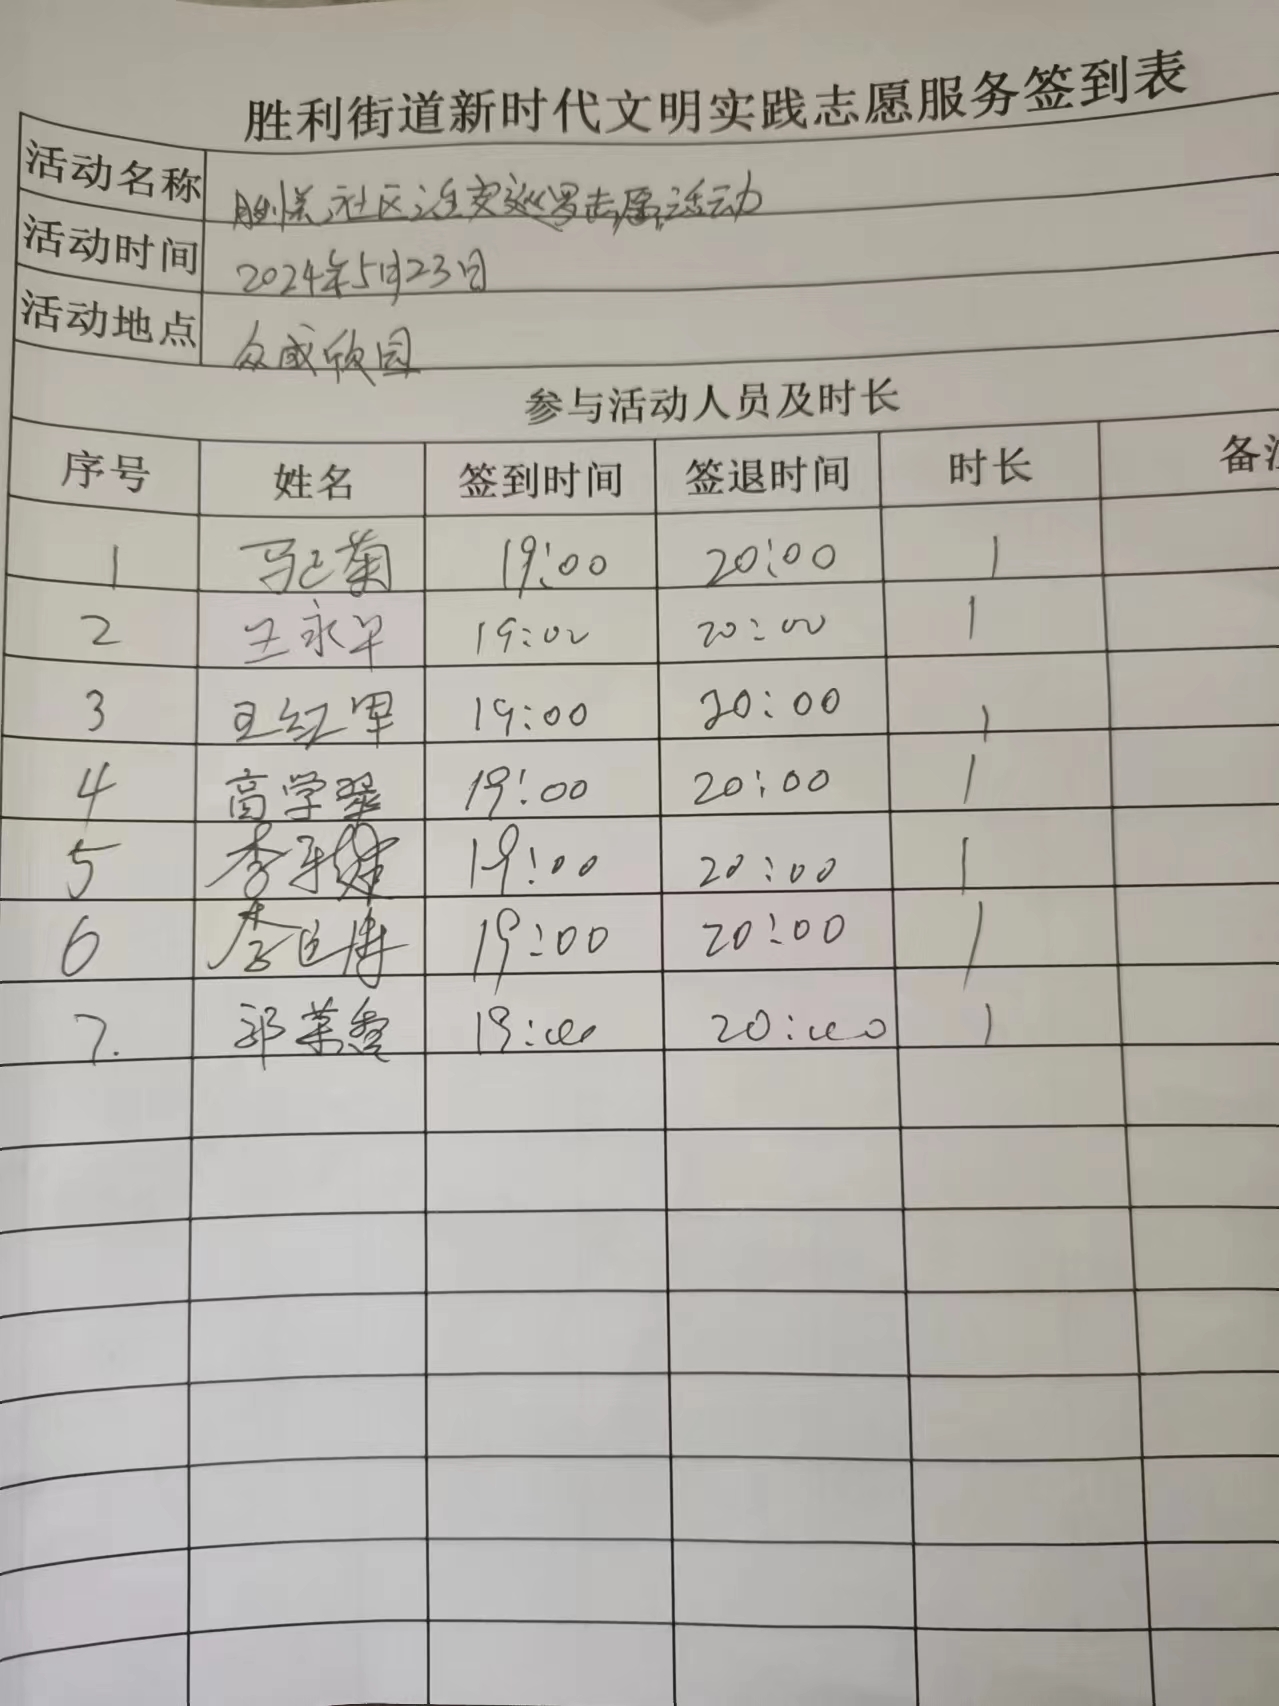 胜利街道新时代文明实践志愿服务签到表
活动名称 社区治安巡逻志愿活动
活动时间 2024年5月23日
活动地点 众成欣园
参与活动人员及时长
序号 姓名 签到时间 签退时间 时长 备注
1 马已菊 19:00 20:00 1
2 王永早 19:00 20:00 1
3 王红军 19:00 20:00 1
4 高学翠 19:00 20:00 1
5 李 19:00 20:00 1
6 李 19:00 20:00 1
7. 郭荣鑫 19:00 20:00 1